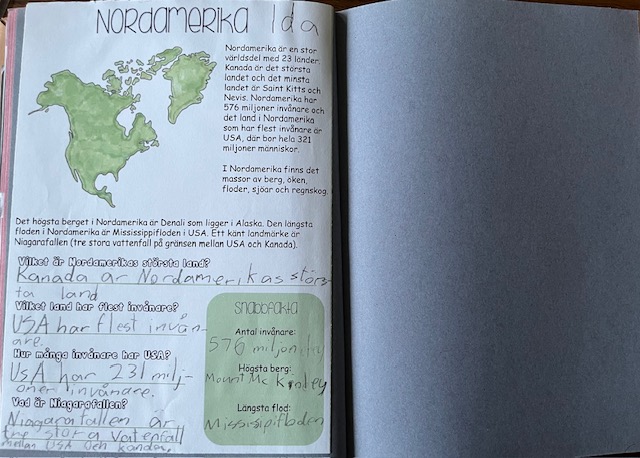 NORDAMERIKA Ida
Nordamerika är en stor
världsdel med 23 länder.
Kanada är det största
landet och det minsta
landet är Saint Kitts och
Nevis. Nordamerika har
576 miljoner invånare och
det land i Nordamerika
som har flest invånare är
USA, där bor hela 321
miljoner människor.
I Nordamerika finns det
massor av berg, öken,
floder, sjöar och regnskog.
Det högsta berget i Nordamerika är Denali som ligger i Alaska. Den längsta
floden i Nordamerika är Mississippifloden i USA. Ett känt landmärke är
Niagarafallen (tre stora vattenfall på gränsen mellan USA och Kanada).
Vilket är Nordamerikas största land?
Kanada är Nordamerikas störs-
ta land
Vilket land har flest invånare?
USA har flest invån-
are.
Hur många invånare har USA?
USA har 231 milj-
oner invånare.
Vad är Niagarafallen?
Niagarafallen är
tre stora vatenfall
mellan USA och kanda.
Snabbfakta
Antal invånare:
576 miljon
Högsta berg:
Mount Mc Kinley
Längsta flod:
Missisipifloden